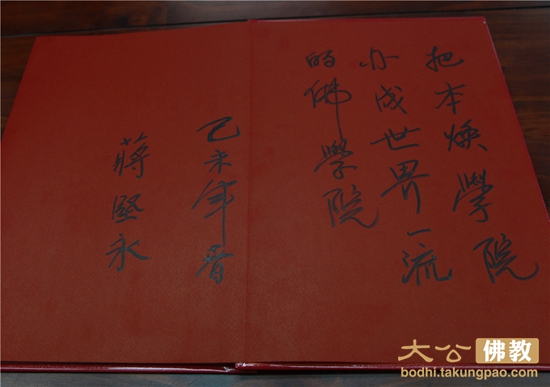 把本焕學院
办成世界一流
的佛學院
乙未年春
蔣堅永
大公佛教
bodhi.takungpao.com